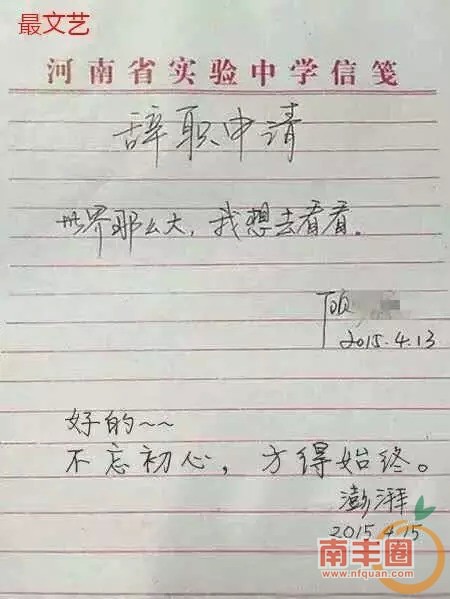 最文艺
河南省实验中学信笺
辞职申请
世界那么大，我想去看看。
顾
2015.4.13
好的~~
不忘初心，方得始终。
澎湃
2015.4.15
南丰圈
www.nfquan.com